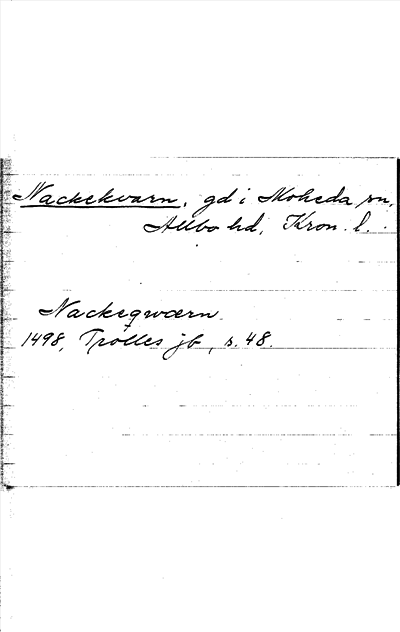 Nackekvarn, gd i Moheda sn,
Allbo hd, Kron. l.
Nackeqwærn
1498, Trolles jb, s. 48.